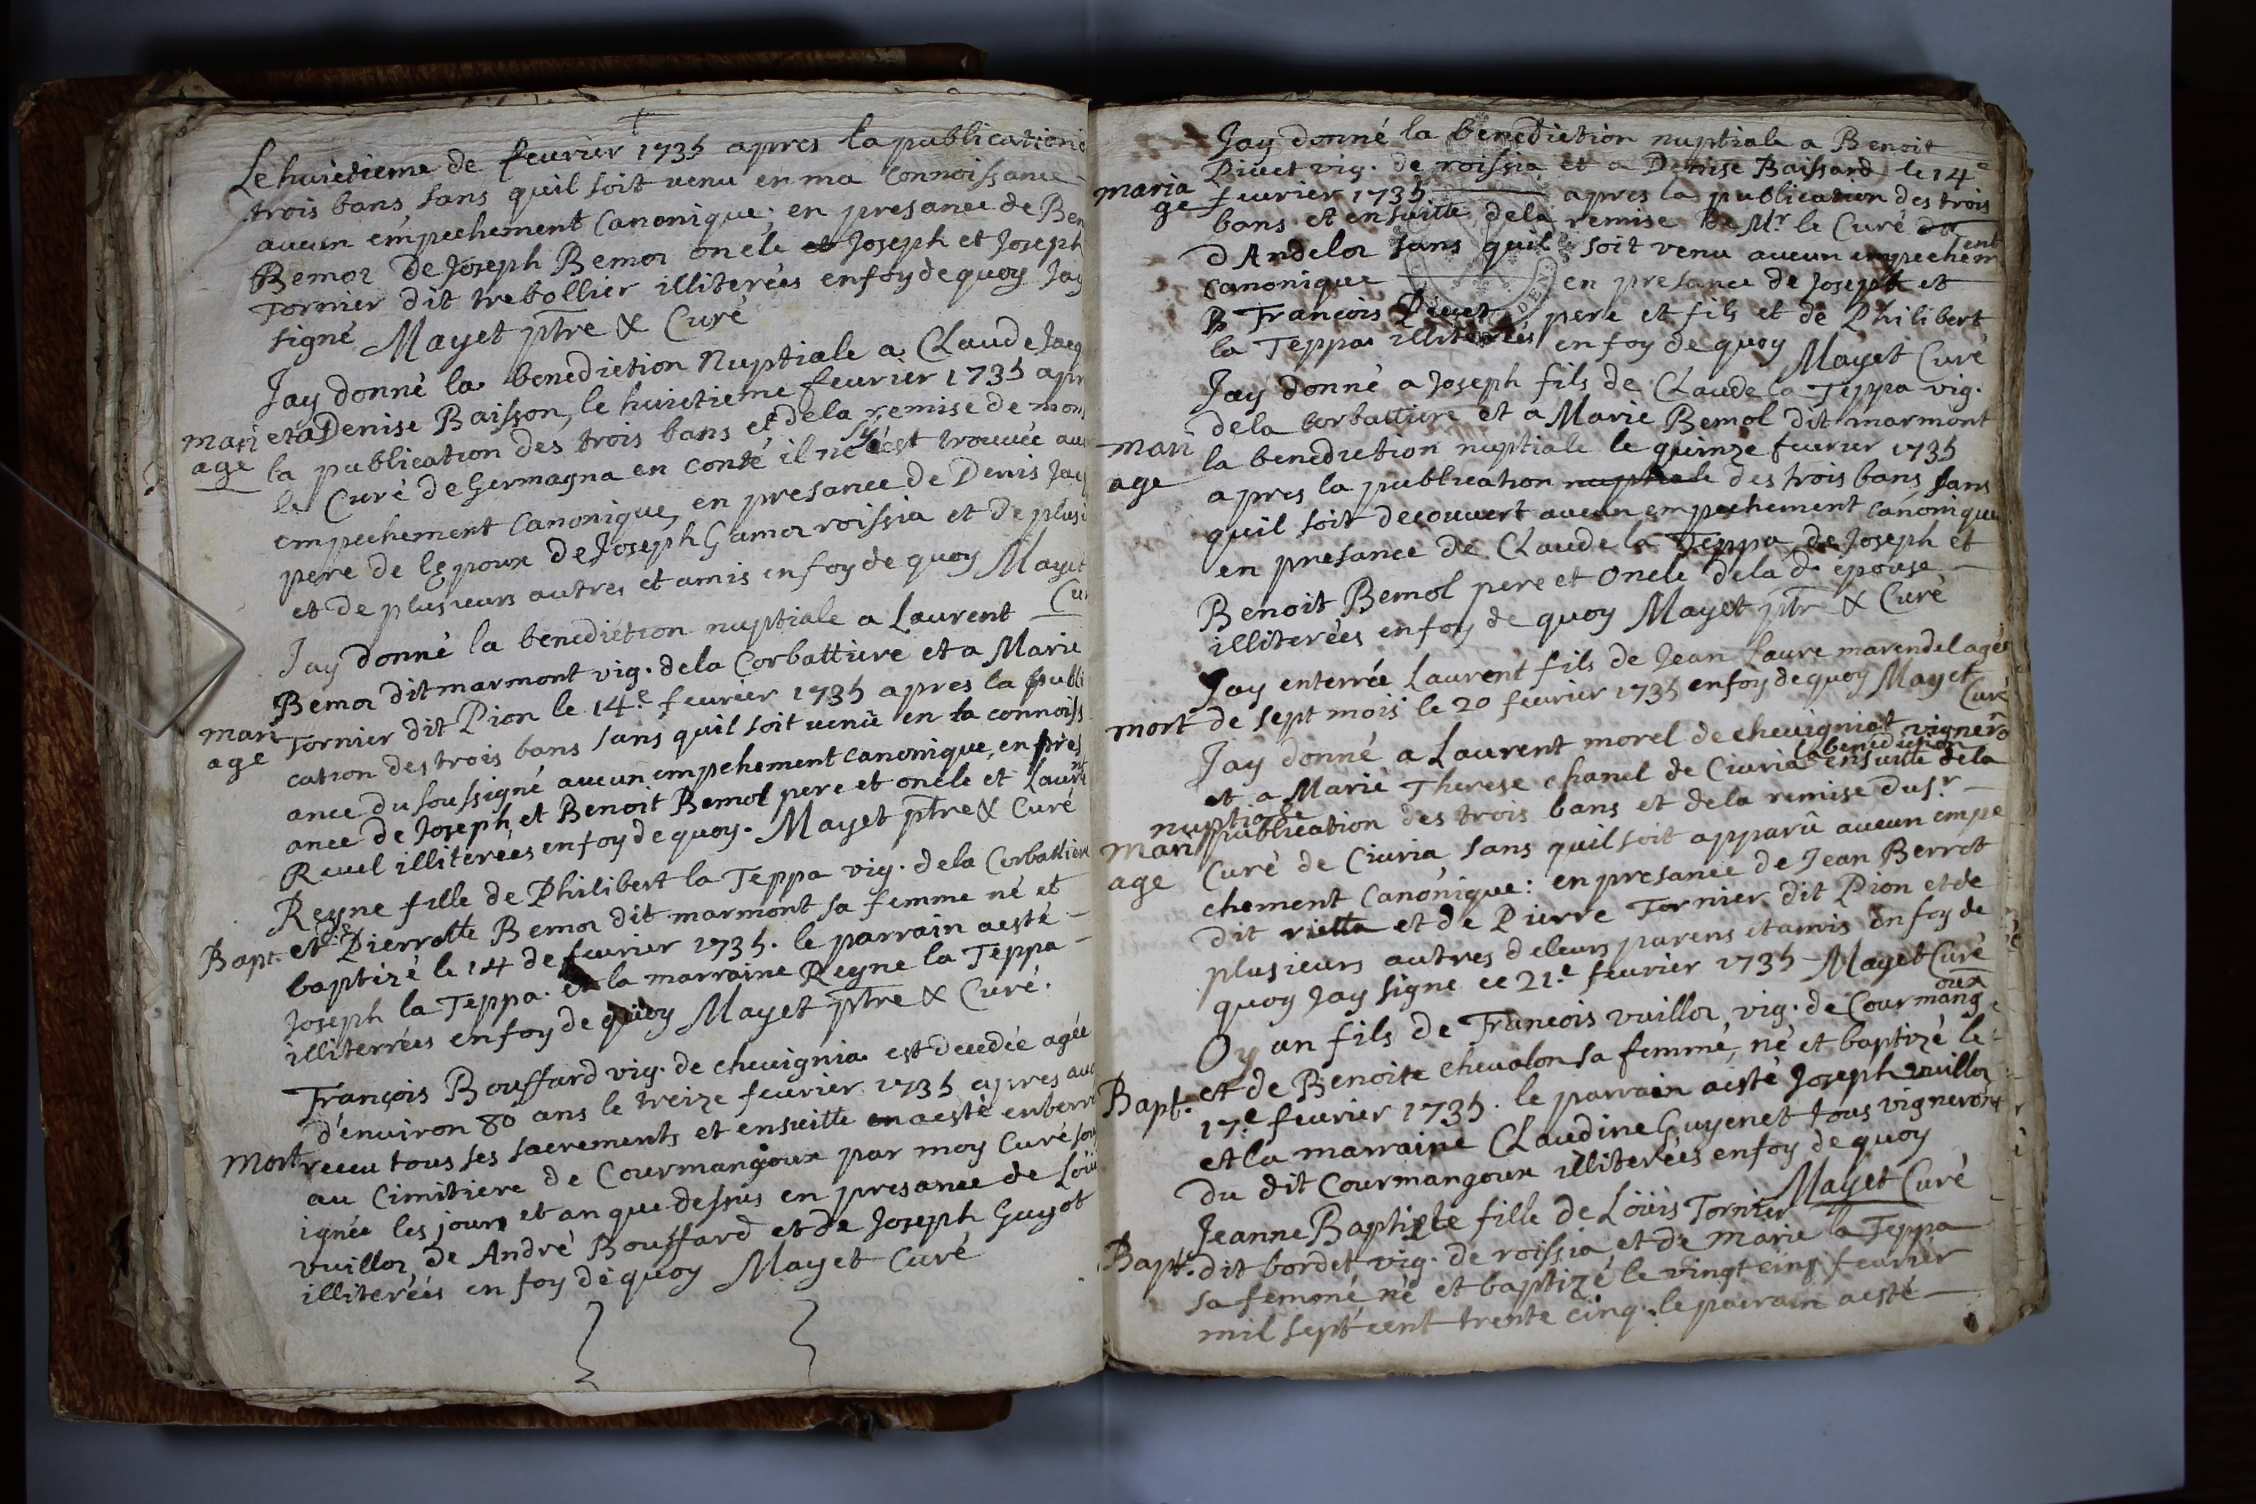 Le huictieme de fevrier 1735 apres la publication
trois bans sans quil soit venu en ma connoissance
aucun empechement canonique; en presance de Ben
Bemor de Joseph Bemor oncle et Joseph et Joseph
Tornier dit trebollier illiterées en foy de quoy Jay
signé Mayet ptre & Curé
Jay donné la benediction Nuptiale a Claude Jacq
mari
age
et a Denise Baisson, le huictieme fevrier 1735 apr
la publication des trois bans et de la remise de mon
le Curé de Germagna en conté il ne sy est trouvée au
empechement canonique, en presance de Denis Jacq
pere de lepoux de Joseph Gamor roissia et de plusi
et de plusieurs autres et amis en foy de quoy Mayet
Cu
Jay donné la benediction nuptiale a Laurent
Bemor dit marmont vig. de la Corbattiere et a Marie
mari
age
Tornier dit Pion le 14.e fevrier 1735 apres la publi
cation des trois bans sans quil soit venu en la connoiss
ance du soussigné aucun empehement canonique, en pres
ance de Joseph et Benoit Bemol pere et oncle et Laurent
Revel illiterées en foy de quoy. Mayet ptre & Curé
Reyne fille de Philibert la Teppa vig. de la Corbattiere
Bapt. et de Pierrotte Bemor dit marmont sa femme né et
baptizé le 14 de fevrier 1735. le parrain a esté
Joseph la Teppa. et la marraine Reyne la Teppa
illiterrées en foy de quoy Mayet ptre & Curé.
François Bouffard vig. de chevignia est decedée agée
d'environ 80 ans le treize fevrier 1735 apres avo
mort receu tous ses sacrements et ensuitte en a esté enterré
au Cimitiere de Courmangoux par moy Curé sous
ignée les jours et an que dessus en presance de Loüis
vuillor de André Bouffard et de Joseph Guyot
illiterées en foy de quoy Mayet Curé
Jay donné la benediction nuptiale a Benoit
Pivet vig. de roissia et a Denise Baissard le 14e
maria
ge
fevrier 1735 apres la publication des trois
bans et ensuitte de la remise de Mr. le Curé
d'Andelor sans quil soit venu aucun empechem
ent
canonique en presance de Joseph et
François Pivet pere et fils et de Philibert
la Teppa illiterées en foy de quoy Mayet Curé
Jay donné a Joseph fils de Claude la Teppa vig.
de la Corbattiere et a Marie Bemol dit marmont
mari
age
la benediction nuptiale le quinze fevrier 1735
apres la publication nuptiale des trois bans sans
quil soit decouvert aucun empechement canonique
en presance de Claude la Teppa de Joseph et
Benoit Bemol pere et oncle de la d. epouse
illiterées en foy de quoy Mayet ptr & Curé
Jay enterrée Laurent fils de Jean Laure marendel agée
mort de sept mois le 20 fevrier 1735 en foy de quoy Mayet
Curé
Jay donné a Laurent morel de chevigniat vignero
et a Marie Therese chanel de Civria la benediction
nuptiale
ensuitte de la
mari
age
publication des trois bans et de la remise du sr.
Curé de Civria sans quil soit apparû aucun empe
chement canonique: en presance de Jean Berrot
dit rietta et de Pierre Tornier dit Pion et de
plusieurs autres de leurs parens et amis en foy de
quoy Jay signé ce 21.e fevrier 1735 Mayet Curé
Oyan fils de François vuillor, vig. de Courmang
oux
et de Benoite chevalon sa femme, né et baptizé le
Bapt. 17.e fevrier 1735. le parrain a esté Joseph vuillor
et la marraine Claudine Guyenet tous vignerons
du dit Courmangoux illiterées en foy de quoy
Mayet Curé
Jeanne Baptiste fille de Loüis Tornier
Bapt. dit bordet vig. de roissia et de marie la Teppa
sa femme né et baptizé le vingt cinq fevrier
mil sept cent trente cinq. le parrain a esté